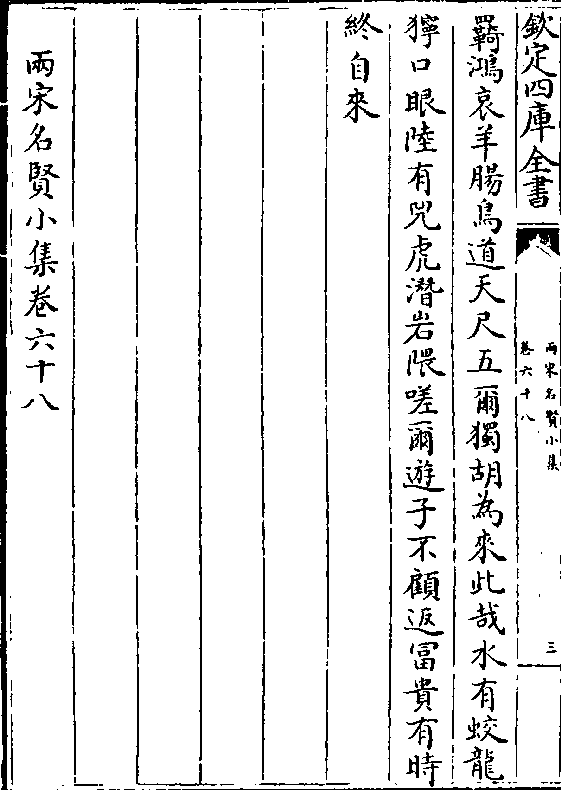 欽定四庫全書
兩宋名賢小集
卷六十八
三
羇鴻哀羊腸鳥道天尺五爾獨胡為來此哉水有蛟龍
獰口眼陸有兕虎潛岩隈嗟爾遊子不顧返富貴有時
終自來
兩宋名賢小集卷六十八